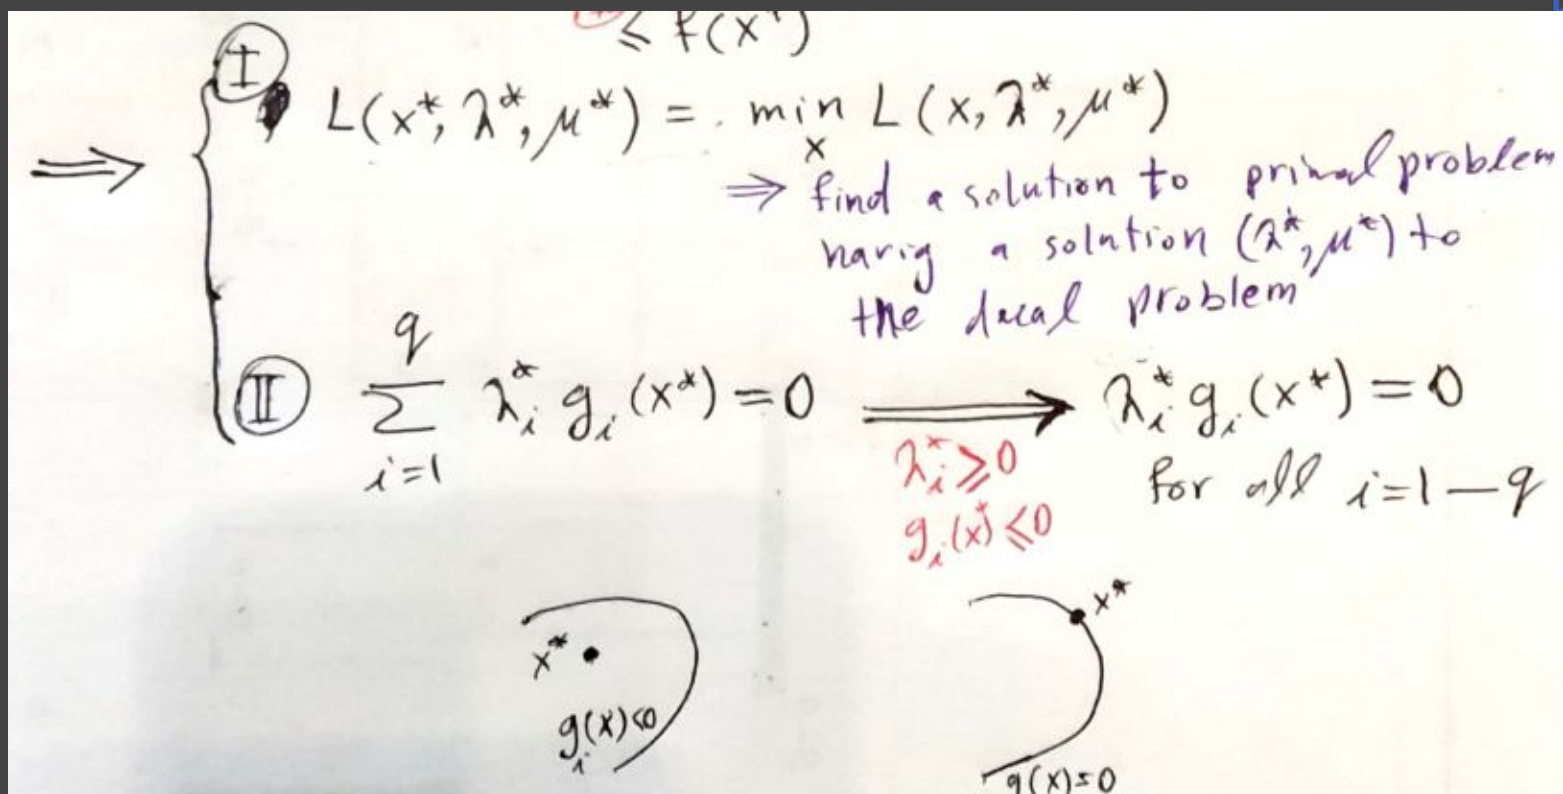 ≤ f(x*)
Ⓘ L(x*, λ*, μ*) = . min L(x, λ*, μ*)
x
⟹
⇒ find a solution to primal problem
harig a solution (λ*, μ*) to
the dual problem
q
Ⓘⓘ ∑ λᵢ* gᵢ(x*) = 0 ⟹ λᵢ* gᵢ(x*) = 0
i=1
λᵢ* ≥ 0
for all i=1 — q
gᵢ(x*) ≤ 0
x*
x*
gᵢ(x)<0
g(x)=0